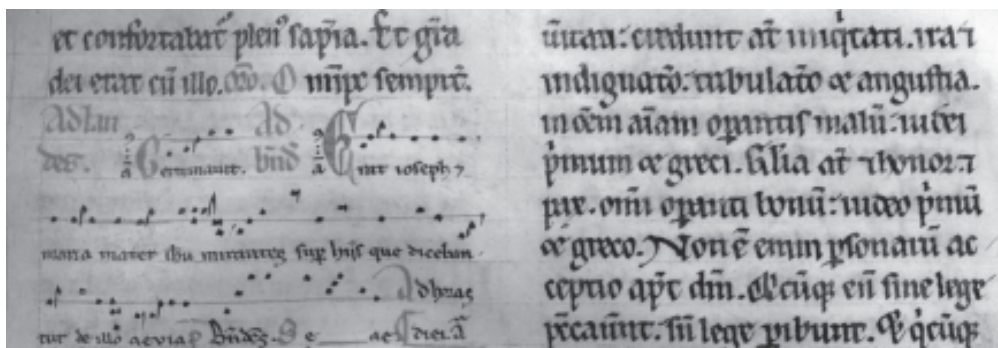 et confortabat᷑ plen᷒ sapīa. Et gr̄a
dei erat cū illo. oR̄o. O mp̄s sempit̄.
Ad lau Ad
des. Germinavit. bn̄d Erat ioseph ⁊
maria mater ihu mirantes sup hiis que diceban
Ad horas
tur de illo aevia
ueritati. credunt aūt iniq̇tati. ira ⁊
indignatō. tribulatō ⁊ angustia.
in oēm aīam opantis malū. iudei
ṗmum ⁊ greci. Gl̄ia aūt ⁊ honor ⁊
pax. omī opanti bonū. iudeo ṗmū
⁊ greco. Non ē enim psonarū ac
ceptio apt̄ dm̄. Q̇cūq; en̄ sine lege
peccaver̄t. sn̄ lege pibunt. Et q̇cūq;